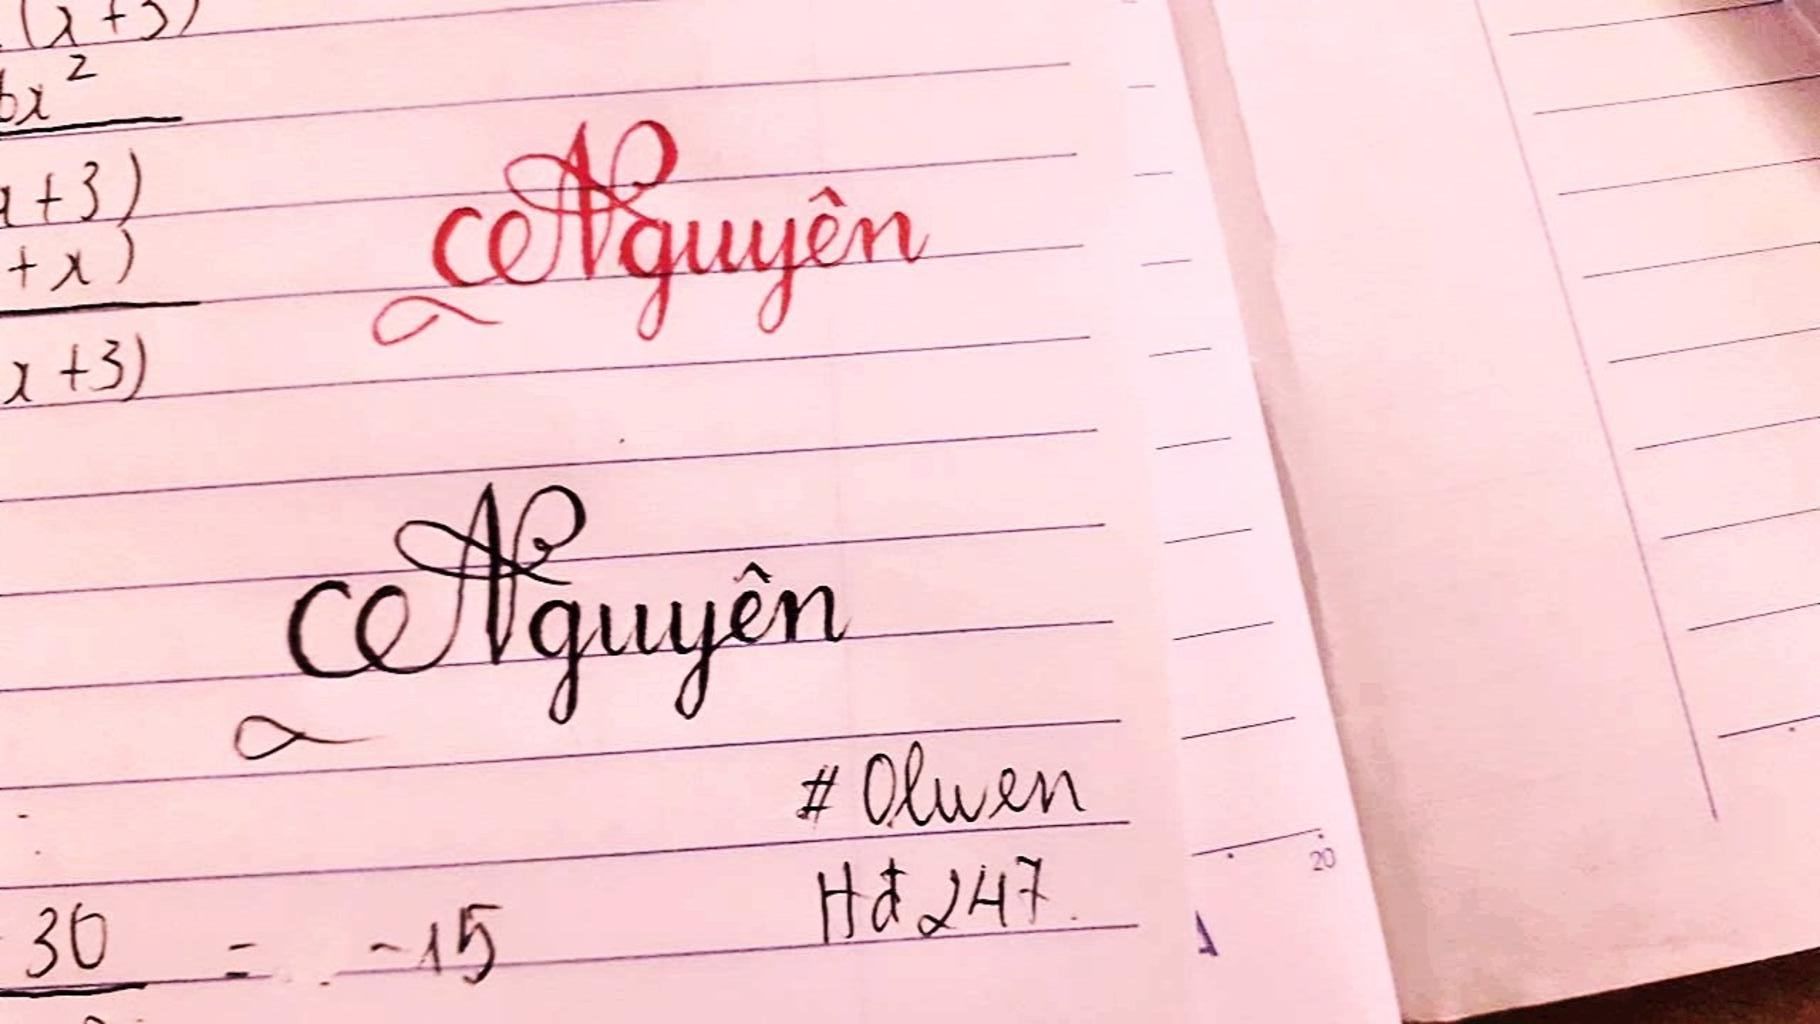 (x+3)
6x²
x+3)
+x)
x+3)
Nguyên
Nguyên
# Olwen
Hđ 247
30 = -15
20